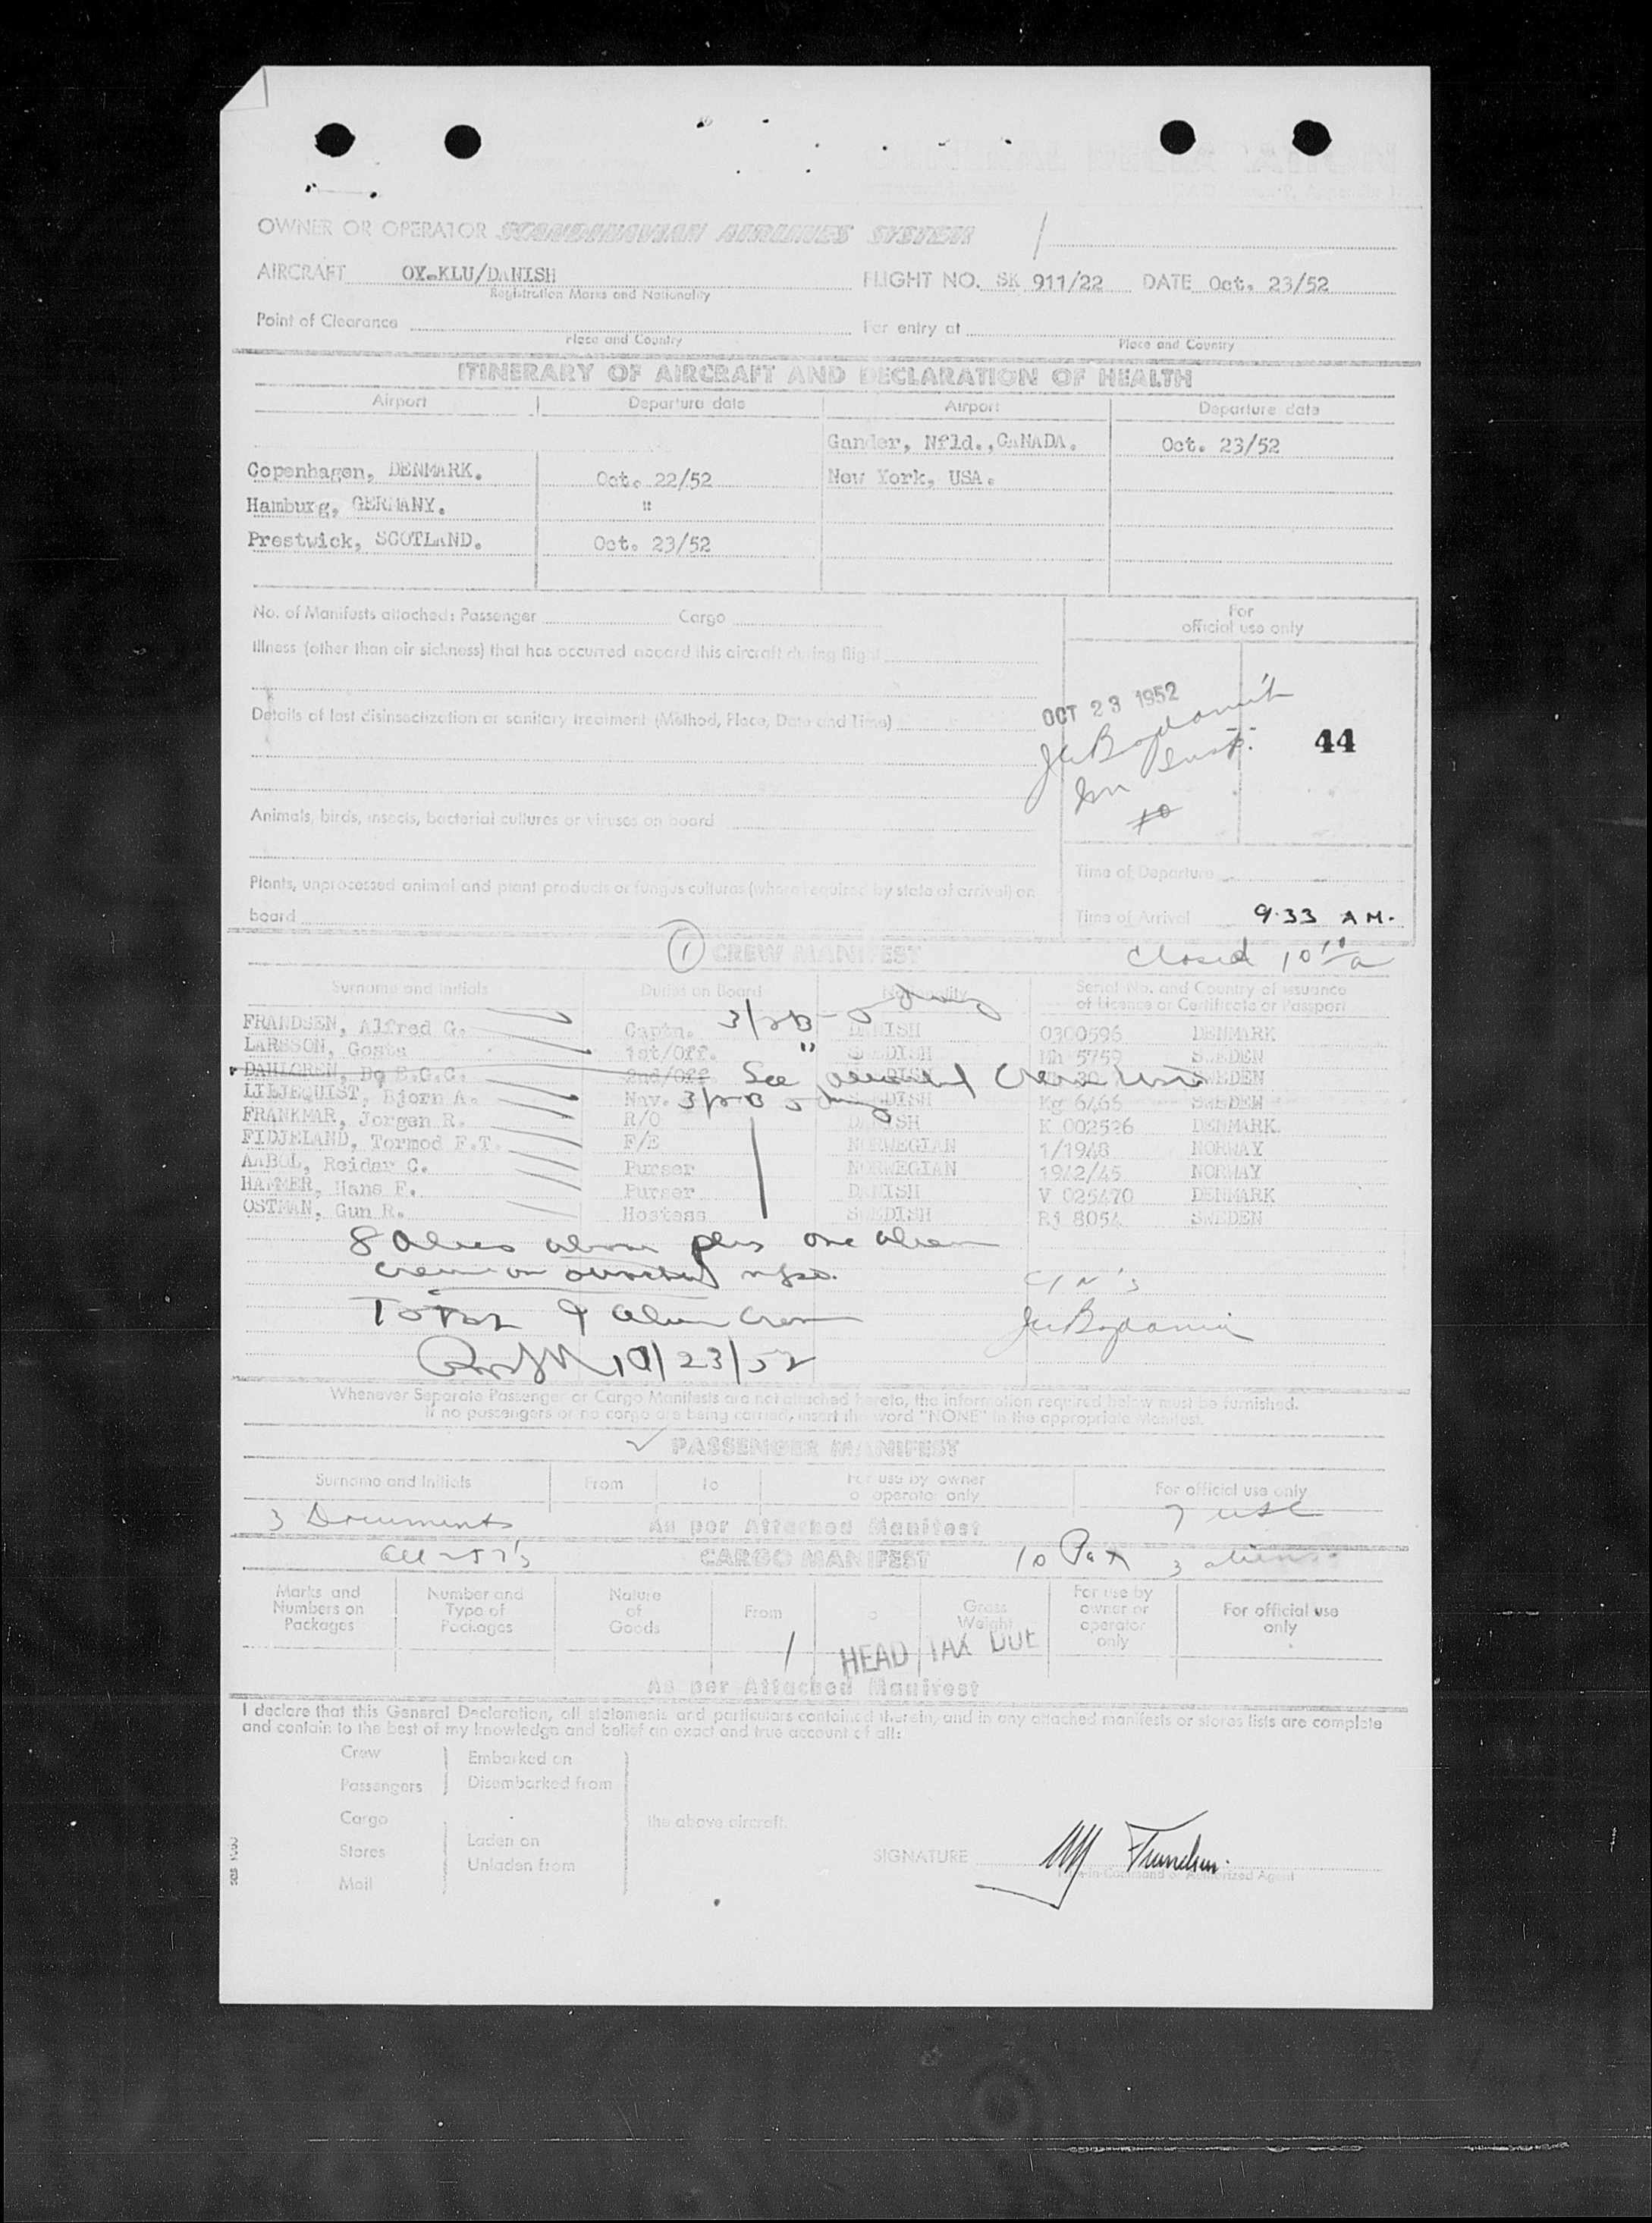 OWNER OR OPERATOR SCANDINAVIAN AIRLINES SYSTEM
AIRCRAFT OY-KLU/DANISH FLIGHT NO. SK 911/22 DATE Oct. 23/52
Registration Marks and Nationality
Point of Clearance For entry at
Place and Country Place and Country
ITINERARY OF AIRCRAFT AND DECLARATION OF HEALTH
Airport Departure date Airport Departure date
Gander, Nfld., CANADA. Oct. 23/52
Copenhagen, DENMARK. Oct. 22/52 New York, USA.
Hamburg, GERMANY. "
Prestwick, SCOTLAND. Oct. 23/52
No. of Manifests attached: Passenger Cargo
For
official use only
Illness (other than air sickness) that has occurred aboard this aircraft during flight
OCT 23 1952
Details of last disinsectization or sanitary treatment (Method, Place, Date and Time)
44
Animals, birds, insects, bacterial cultures or viruses on board
Plants, unprocessed animal and plant products or fungus cultures (where required by state of arrival) on
board
Time of Departure
Time of Arrival 9.33 AM.
1 CREW MANIFEST Closed 10
Surname and Initials Duties on Board Nationality Serial No. and Country of Issuance
of Licence or Certificate or Passport
FRANDSEN, Alfred G. Captn. DANISH 0300596 DENMARK
LARSSON, Gosta 1st/Off. " SWEDISH Mh 5759 SWEDEN
DAHLGREN, Bo E.G.C. 2nd/Off. See SWEDEN
LILJEQUIST, Bjorn A. Nav. SWEDISH Kg 6466 SWEDEN
FRANKMAR, Jorgen R. R/O DANISH K 002526 DENMARK.
FIDJELAND, Tormod F.T. F/E NORWEGIAN 1/1948 NORWAY
AABOL, Reidar C. Purser NORWEGIAN 1942/45 NORWAY
HAMMER, Hans F. Purser DANISH V 025470 DENMARK
OSTMAN, Gun R. Hostess SWEDISH Rj 8054 SWEDEN
8 Aliens above plus one alien
Total 9 alien crew
10/23/52
Whenever Separate Passenger or Cargo Manifests are not attached hereto, the information required below must be furnished.
If no passengers or no cargo are being carried, insert the word "NONE" in the appropriate Manifest.
PASSENGER MANIFEST
Surname and Initials From To For use by owner
or operator only For official use only
3 Documents As per Attached Manifest 7 USC
CARGO MANIFEST 10 Pax 3 aliens
Marks and
Numbers on
Packages
Number and
Type of
Packages
Nature
of
Goods
From
To
Gross
Weight
For use by
owner or
operator
only
For official use
only
HEAD TAX DUE
As per Attached Manifest
I declare that this General Declaration, all statements and particulars contained therein, and in any attached manifests or stores lists are complete
and contain to the best of my knowledge and belief an exact and true account of all:
Crew Embarked on
Passengers Disembarked from
Cargo the above aircraft.
Stores Laden on
Mail Unladen from
SIGNATURE Frandsen.
Pilot-in-Command or Authorized Agent